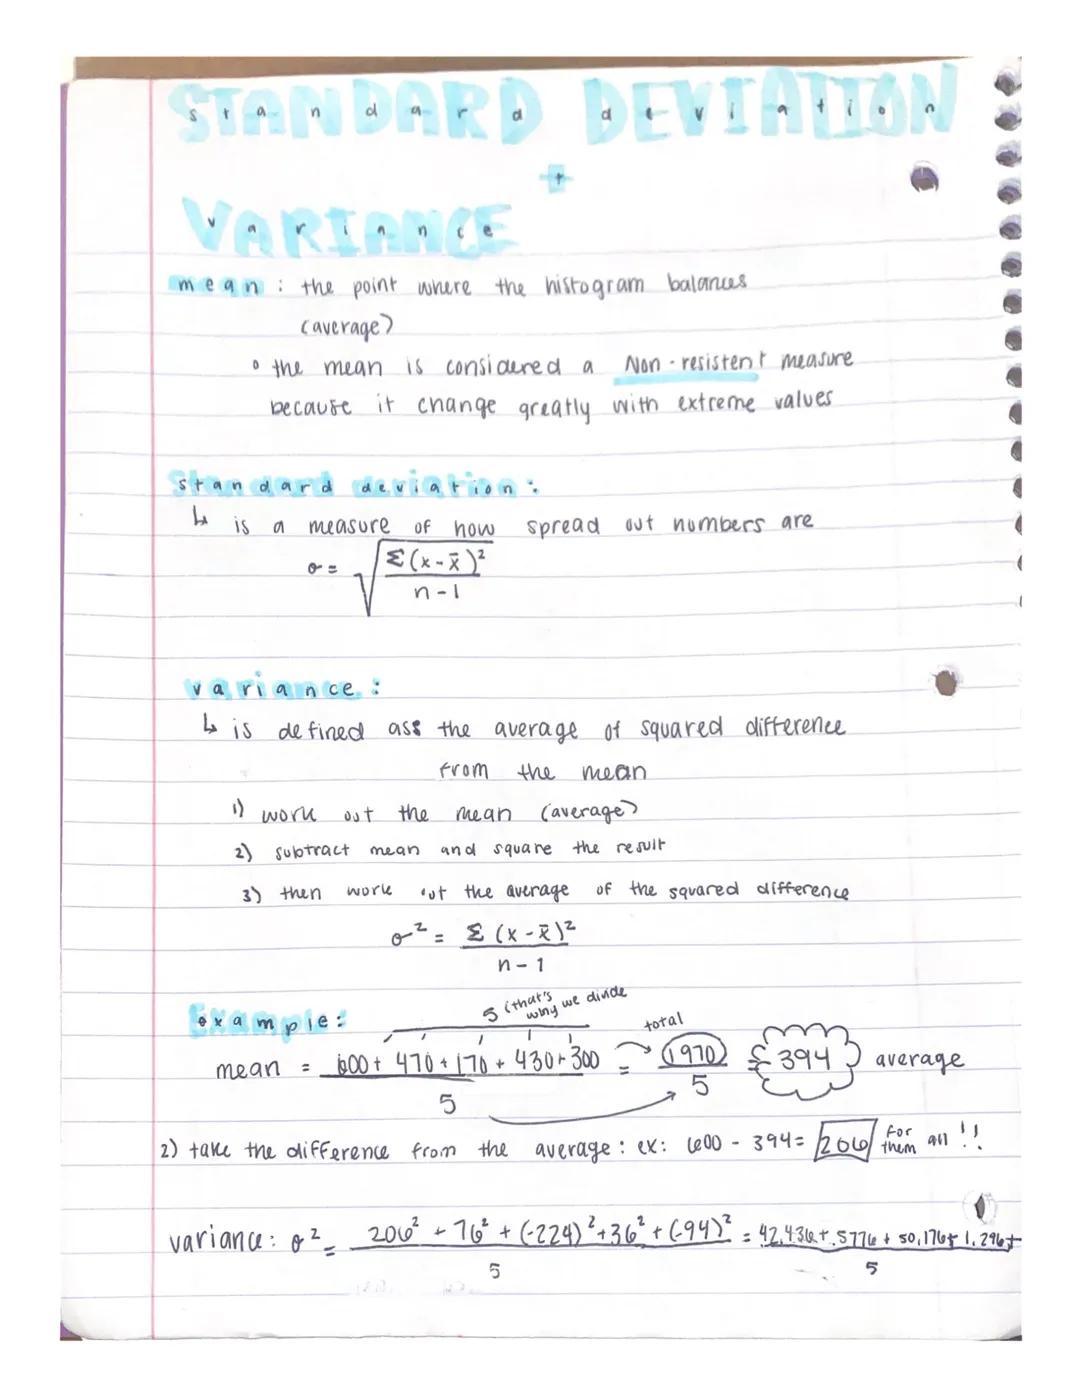 standard deviation
+
variance
mean : the point where the histogram balances
(average)
° the mean is considered a Non-resistent measure
because it change greatly with extreme values
standard deviation :
↳ is a measure of how spread out numbers are
σ = √ Σ(x - x̄)² / n - 1
variance :
↳ is defined ass the average of squared difference
from the mean
1) work out the mean (average)
2) subtract mean and square the result
3) then work out the average of the squared difference
σ² = Σ (x - x̄)² / n - 1
Example:
5 (that's why we divide
total
mean = 600 + 470 + 170 + 430 + 300 / 5 = 1970 / 5 = 394 average
2) take the difference from the average : ex: 600 - 394 = 206 for them all !!
variance: σ² = 206² + 76² + (-224)² + 36² + (-94)² / 5 = 42,436 + 5776 + 50,176 + 1,296 + / 5